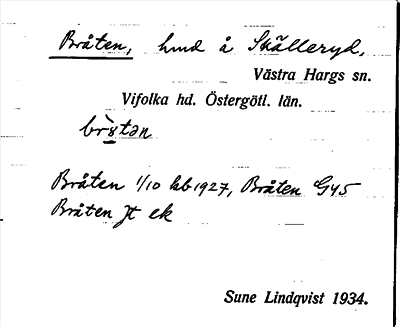 Bråten, hmd å Skälleryd,
Västra Hargs sn.
Vifolka hd. Östergötl. län.
Bråten 1/10 kb 1927, Bråten G45
Bråten Jt ek
Sune Lindqvist 1934.